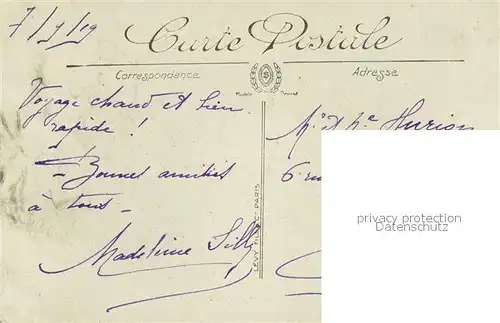 7/9/19
Carte Postale
Correspondance
Adresse
Voyage chaud et bien
rapide !
- Bonnes amitiés
à tous -
Madeleine
Mr et Me Hurion
6
LEVY FILS & Cie PARIS
privacy protection
Datenschutz